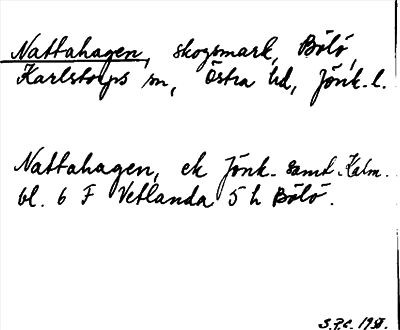 Nattahagen, skogsmark, Bölö,
Karlstorps sn, Östra hd, Jönk. l.
Nattahagen, ek Jönk. samt Kalm.
bl. 6 F Vetlanda 5 h Bölö.
S.P.C. 195